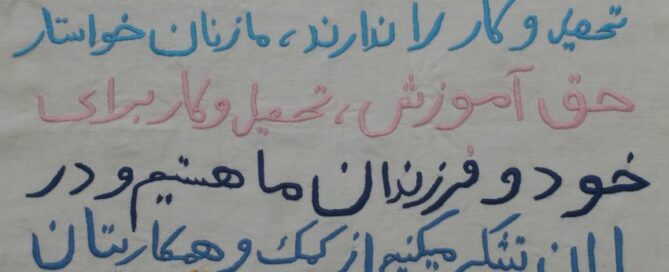 تحصیل و کار را ندارند، ما زنان خواستار
حق آموزش، تحصیل و کار برای
خود و فرزندان ما هستیم و در
تشکر میکنیم از کمک و همکاریتان